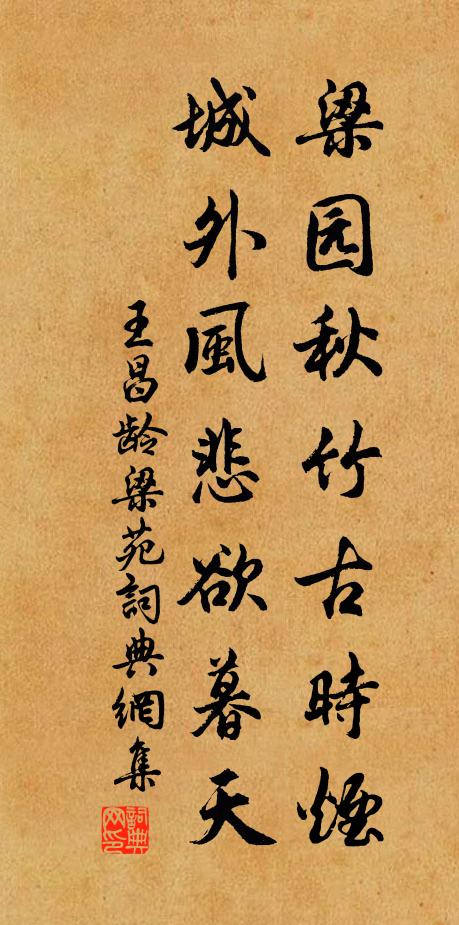 梁园秋竹古時煙
城外風悲欲暮天
王昌龄梁苑詞典網集
詞典网印